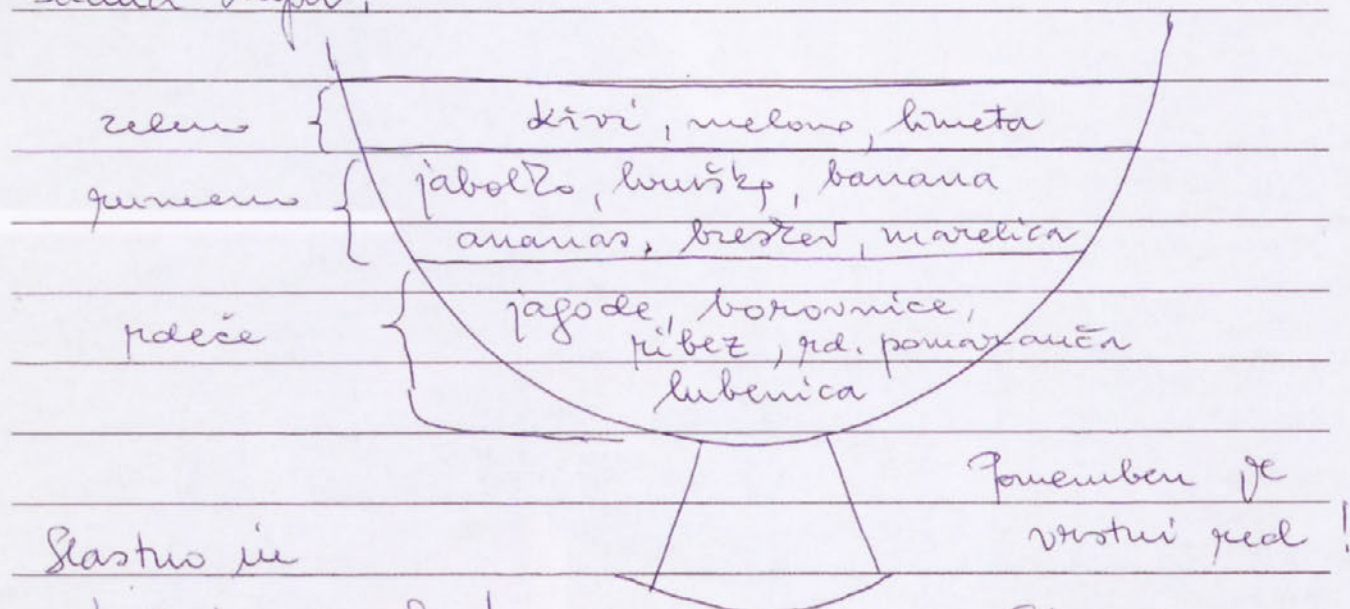 zeleno
kivi, melona, limeta
rumeno
jabolko, hruška, banana
ananas, breskev, marelica
rdeče
jagode, borovnice,
ribez, rd. pomaranča
lubenica
Pomemben je
vrstni red!
Slastno in